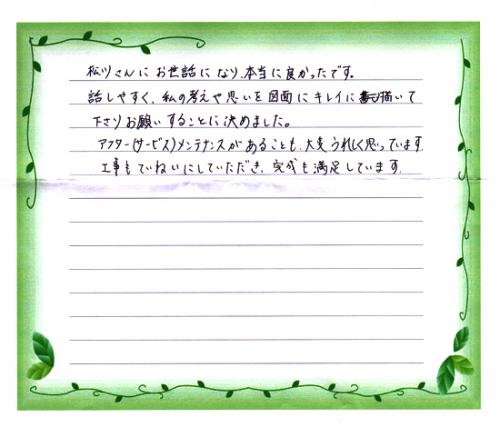 松川さんにお世話になり、本当に良かったです。
話しやすく、私の考えや思いを図面にキレイに描いて
下さりお願いすることに決めました。
アフター(サービス)メンテナンスがあることも、大変うれしく思っています。
工事もていねいにしていただき、完成も満足しています。